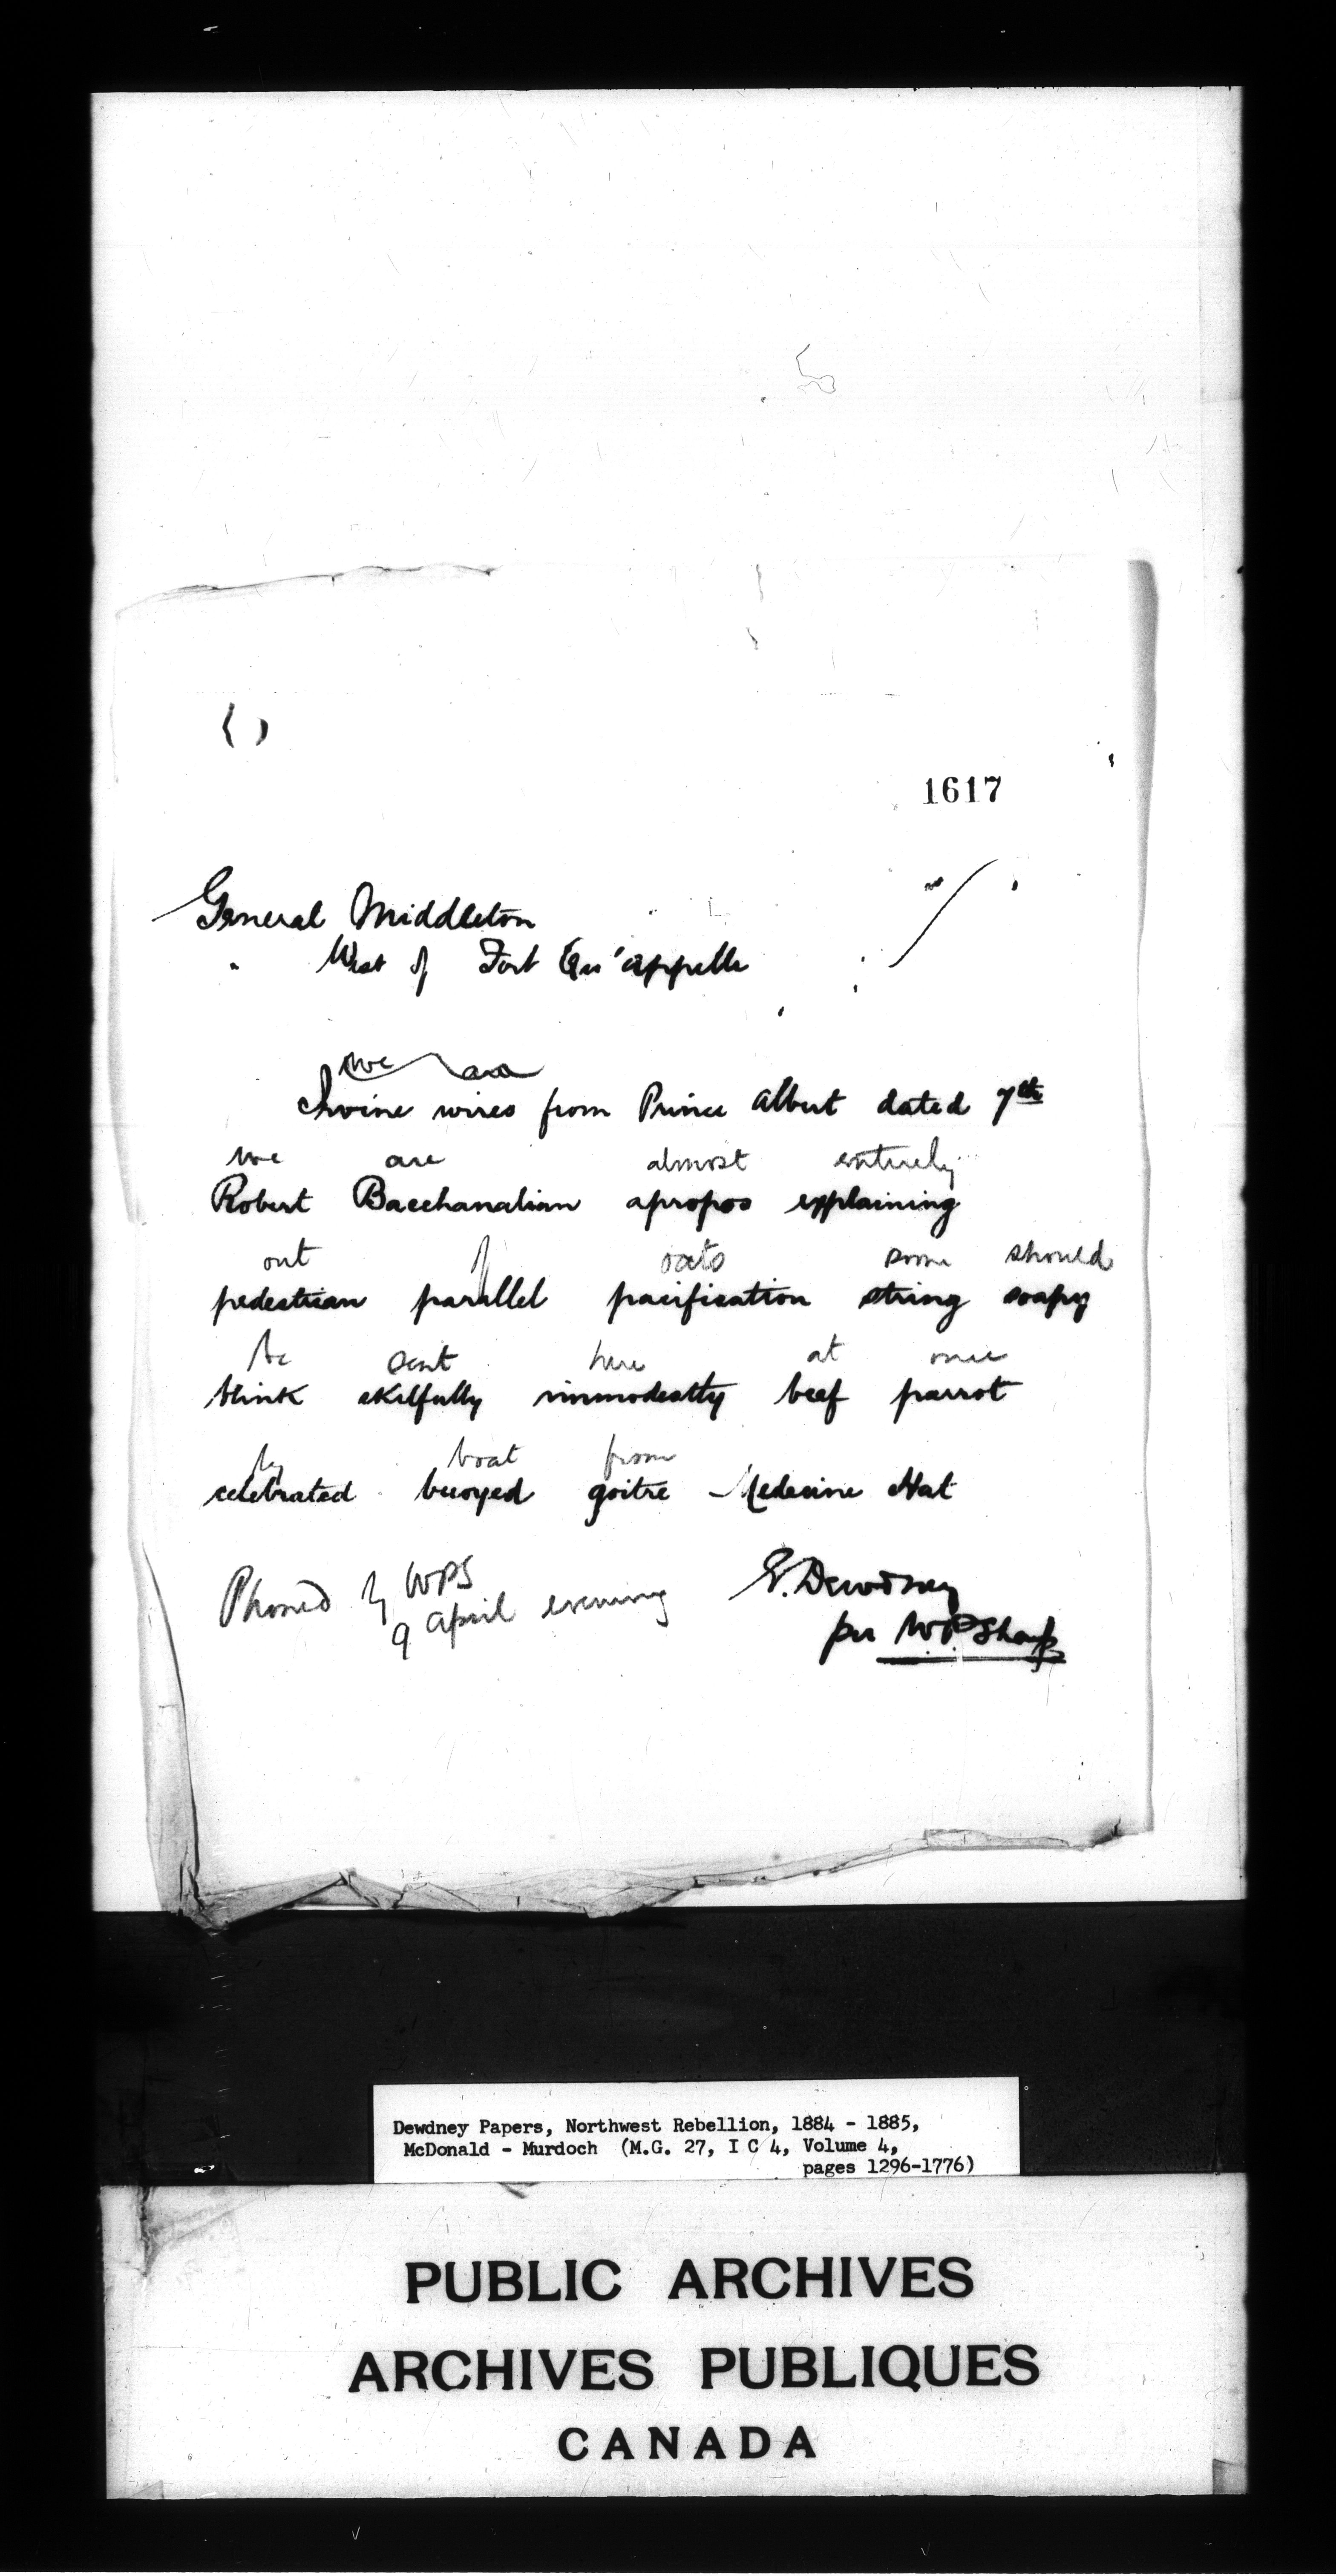 1617
General Middleton
" West of Fort Qu'appelle
we are
Irvine wires from Prince Albert dated 7th
we are almost entirely
Robert Bacchanalian apropos explaining
out of oats some should
pedestrian parallel pacification string soapy
be sent here at once
blink skilfully immodestly beef parrot
by boat from
celebrated buoyed goitre Medecine Hat
Phoned by WPS
9 april evening
E. Dewdney
per W P Sharp
Dewdney Papers, Northwest Rebellion, 1884 - 1885,
McDonald - Murdoch (M.G. 27, I C 4, Volume 4,
pages 1296-1776)
PUBLIC ARCHIVES
ARCHIVES PUBLIQUES
CANADA